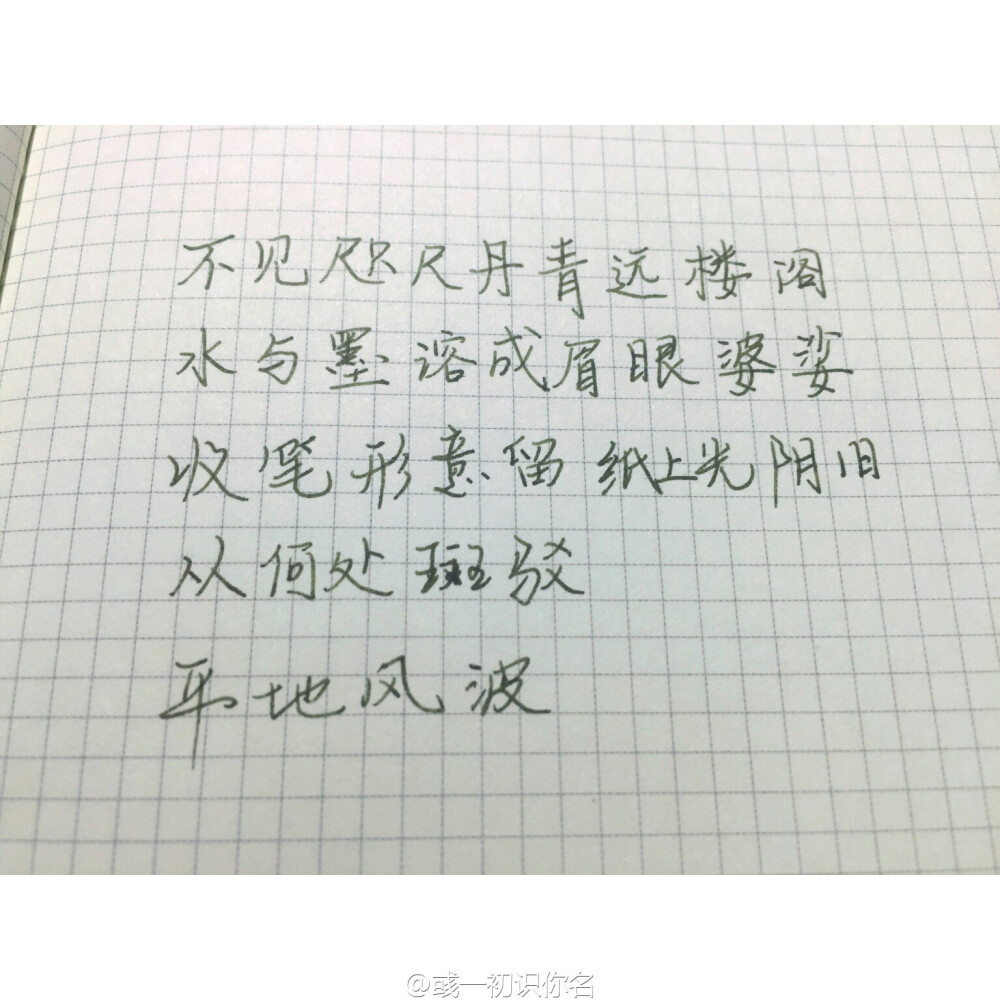 不见咫尺丹青远楼阁
水与墨溶成眉眼婆娑
收笔形意留纸上光阴旧
从何处斑驳
平地风波
@彧一初识你名